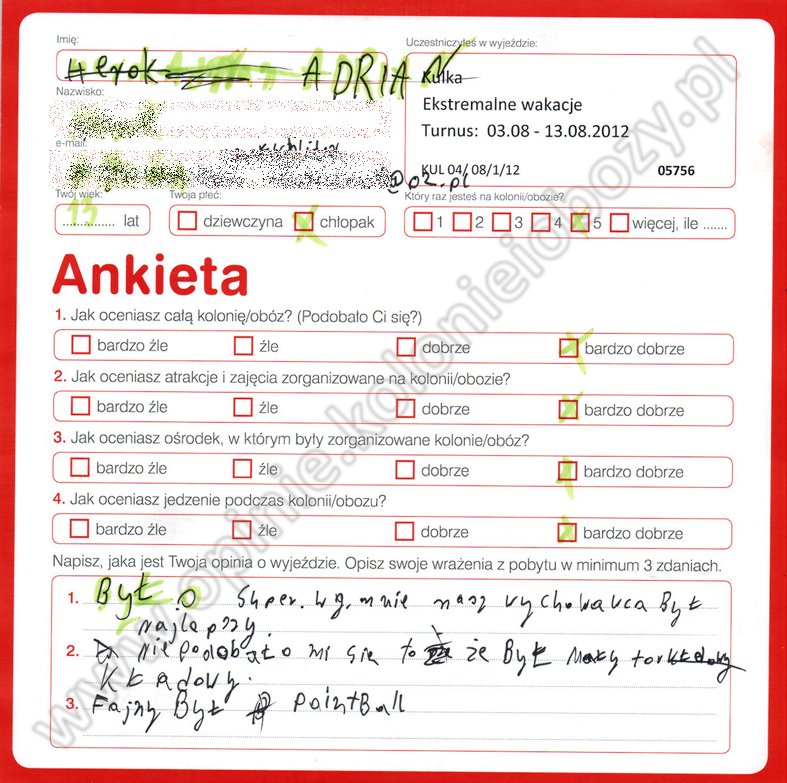 Imię:
ADRIAN
Uczestniczyłeś w wyjeździe:
Kulka
Ekstremalne wakacje
Turnus: 03.08 - 13.08.2012
KUL 04/ 08/1/12 05756
Nazwisko:
e-mail:
@o2.pl
Twój wiek:
13 lat
Twoja płeć:
dziewczyna chłopak
Który raz jesteś na kolonii/obozie?
1 2 3 4 5 więcej, ile .......
Ankieta
1. Jak oceniasz całą kolonię/obóz? (Podobało Ci się?)
bardzo źle źle dobrze bardzo dobrze
2. Jak oceniasz atrakcje i zajęcia zorganizowane na kolonii/obozie?
bardzo źle źle dobrze bardzo dobrze
3. Jak oceniasz ośrodek, w którym były zorganizowane kolonie/obóz?
bardzo źle źle dobrze bardzo dobrze
4. Jak oceniasz jedzenie podczas kolonii/obozu?
bardzo źle źle dobrze bardzo dobrze
Napisz, jaka jest Twoja opinia o wyjeździe. Opisz swoje wrażenia z pobytu w minimum 3 zdaniach.
1. Było super. Wg. mnie nasz wychowawca Był
najlepszy.
2. nie podobało mi się to że Był Mały tor
kładowy.
3. Fajny Był PaintBall
www.opinie.kolonieiobozy.pl